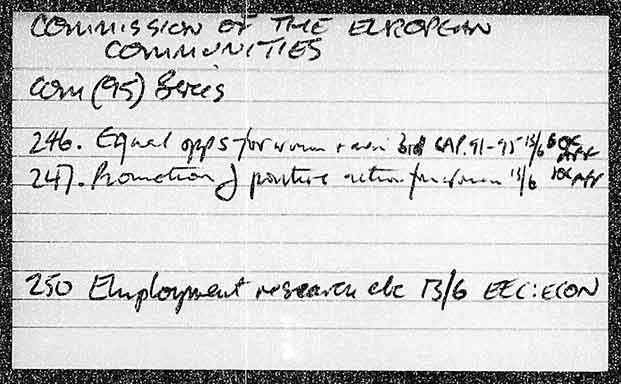 COMMISSION OF THE EUROPEAN
COMMUNITIES
COM (95) Series
246. Equal opps for women + men 3rd CAP. 91-95 13/6 SOC
247. Promotion of positive action for women 13/6 SOC AFF
250 Employment research etc 13/6 EEC: ECON